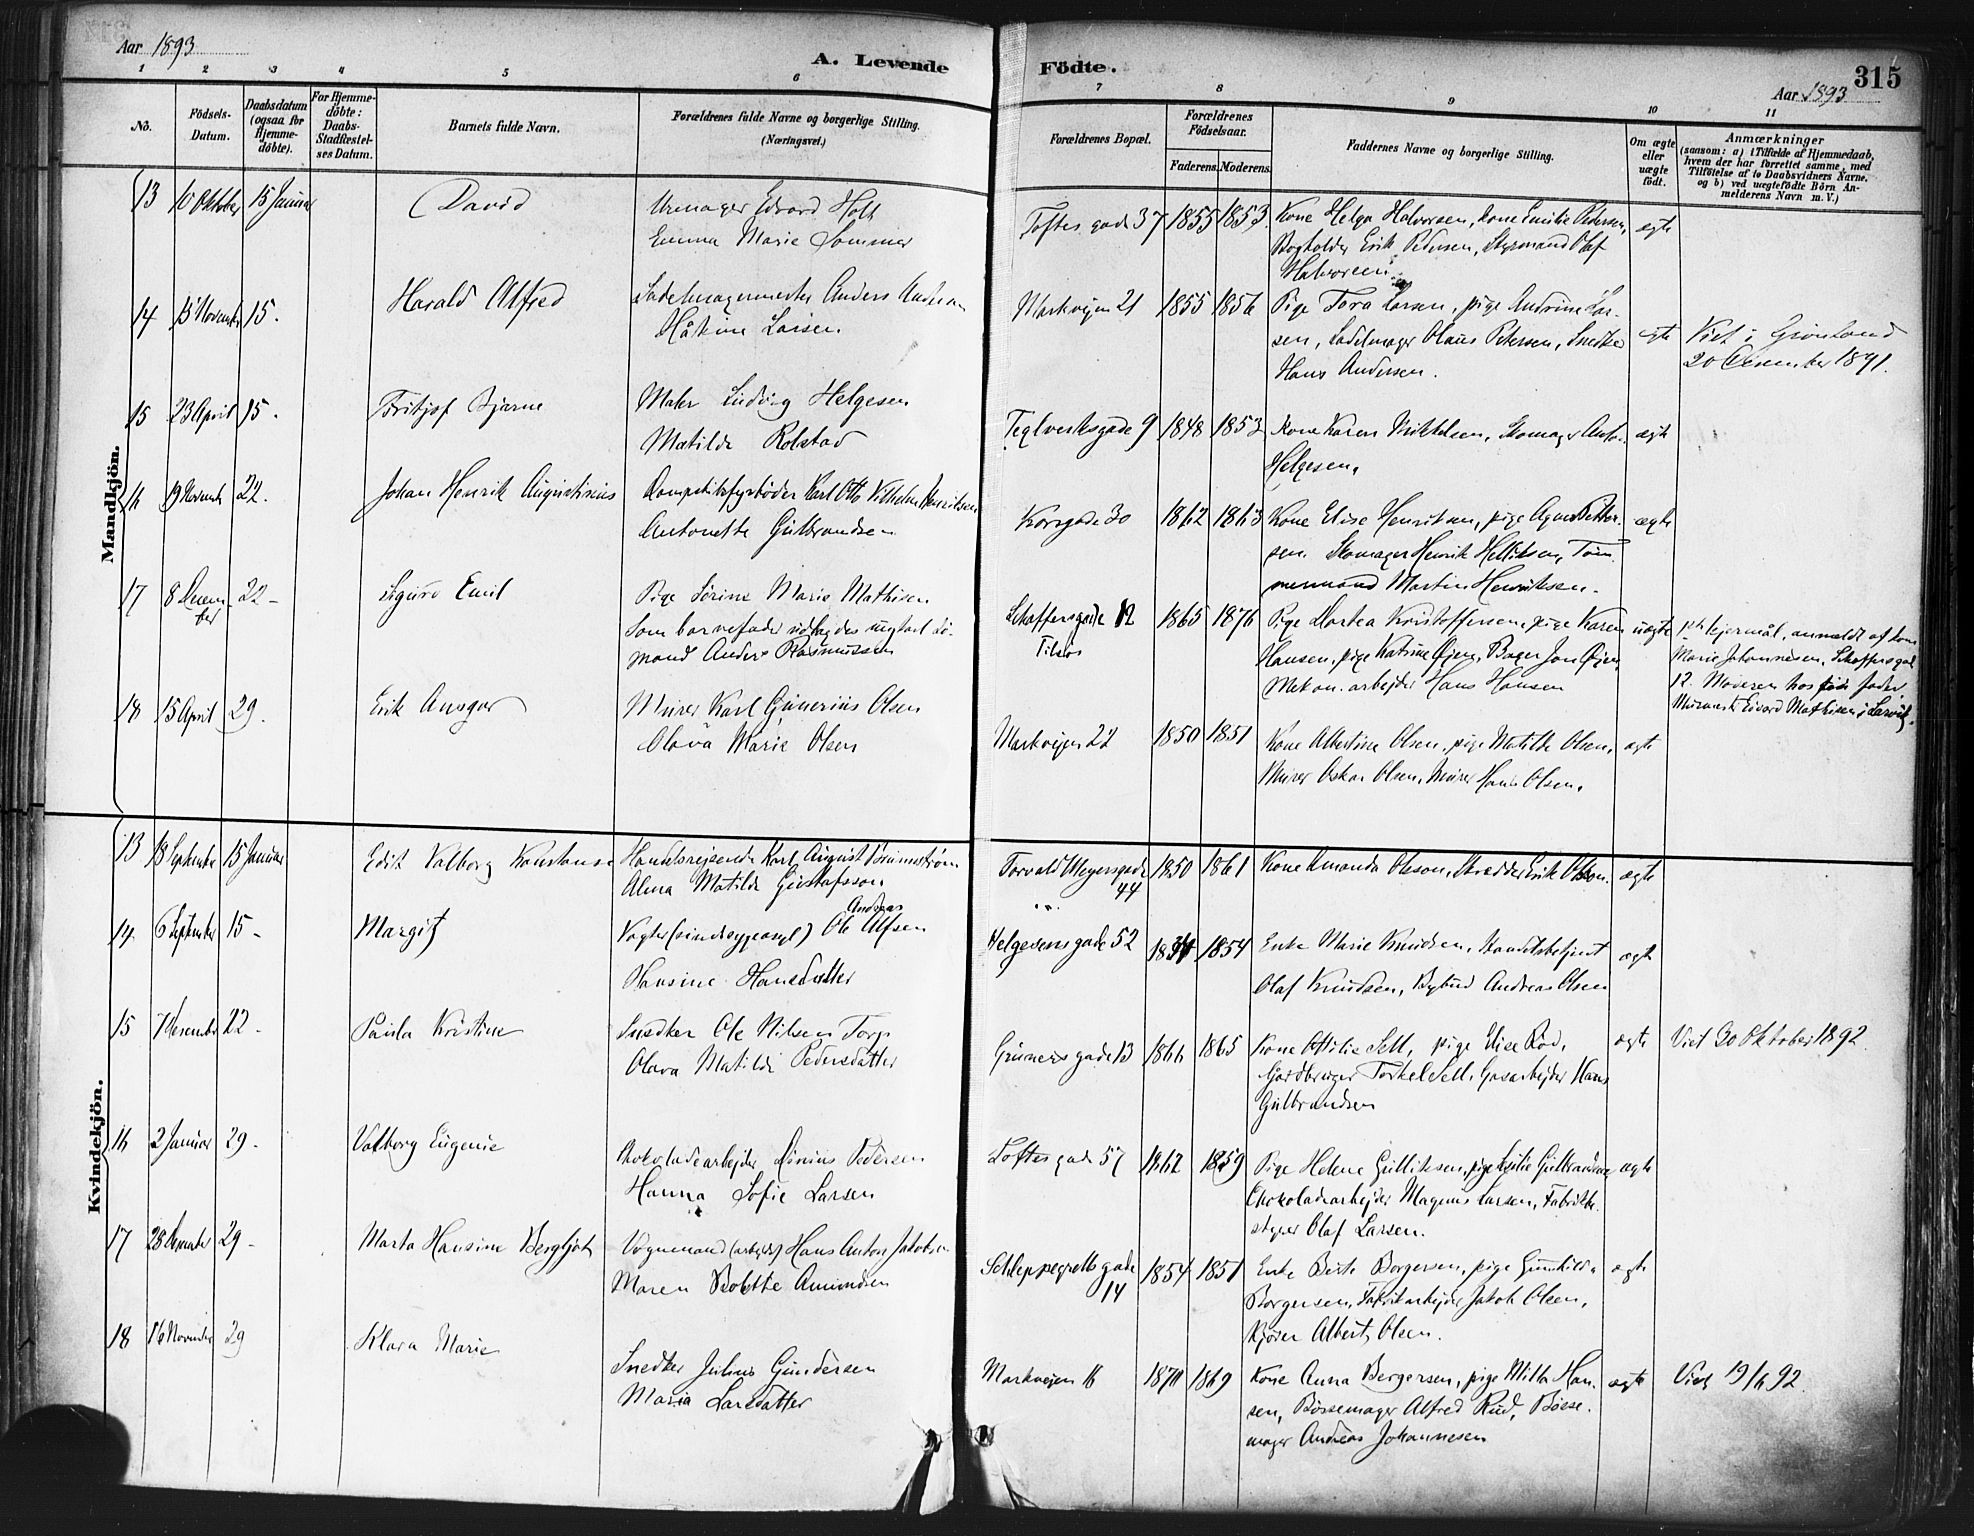 Aar 1893
A. Levende
Födte.
315
Aar 1893
1 2 3 4 5 6 7 8 9 10 11
No.
Födsels-Datum.
Daabsdatum (ogsaa for Hjemme-döbte).
For Hjemme-döbte: Daabs-Stadfæstel-ses Datum.
Barnets fulde Navn.
Forældrenes fulde Navne og borgerlige Stilling.
(Næringsvei.)
Forældrenes Bopæl.
Forældrenes Födselsaar.
Faderens. Moderens.
Faddernes Navne og borgerlige Stilling.
Om ægte eller uægte födt.
Anmærkninger
(saasom: a) i Tilfælde af Hjemmedaab,
hvem der har forrettet samme, med
Tilföielse af to Daabsvidners Navne.
og b) ved uægtefödte Börn An-
melderens Navn m. V.)
Mandkjön.
13 10 Oktober 15 Januar David Urmager Edvard Holt
Emma Marie Sommer
Toftes gade 37 1855 1853 Kone Helga Halvorsen, kone Emilie Pedersen, ægte
Bogholder Erik Pedersen, Styrmand Olaf
Halvorsen
14 15 November 15. Harald Alfred Sadelmagermester Anders Andersen
Håkine Larsen.
Markvejen 21 1855 1856 Pige Tora Larsen, pige Andrine Lar-
sen, Sadelmager Olaus Petersen, Snedker ægte
Hans Andersen.
Viet i Grønland
20 December 1891.
15 23 April 15. Fritjof Bjarne Maler Ludvig Helgesen
Matilde Rolstad
Teglverksgade 9 1848 1853 Kone Karen Mikkelsen, Skomager Anto. ægte
Helgesen.
16 19 Novemb 22. Johan Henrik Augustinius Karl Otto Vilhelm Henriksen
Antonette Gulbrandsen
Korsgade 30 1862 1863 Kone Elise Henriksen, pige Agnes Petter- ægte
sen. Skomager Henrik Helliksen, Töm-
mermand Martin Henriksen.
17 8 Decem-ber 22 - Sigurd Emil Pige Lorine Marie Mathisen
Som barnefader udlægdes ungkarl Sö-
mand Anders Rasmussen
Schaffersgade 12 1865 1876 Pige Dortea Kristoffersen, pige Karen uægte
Hansen, pige Katrine Øjen, Bager Jon Øjen,
Mekan. arbejder Hans Hansen
1ste lejermål, anmeldt af kone
Marie Johannesen, Schaffersgade
12. Moderen hos sin fader,
Edvard Mathisen i Larvik.
18 15 April 29. Erik Ansgar Murer Karl Gunerius Olsen
Olava Marie Olsen
Markvejen 22 1850 1851 Kone Albertine Olsen, pige Matilde Olsen, ægte
Murer Oskar Olsen, Murer Hans Olsen.
Kvindekjön.
13 18 September 15 Januar Edit Valborg Konstanse Handelsrejsende Karl August Brunnström
Alma Matilde Gustafsson.
Torvald Meyersgade 44 1850 1861 Kone Amanda Olsson, Skredder Erik Olsson. ægte
14 6 September 15 - Margit Vogter (sindsygeasyl) Ole Andreas Olsen
Hansine Hansdatter
Helgesens gade 52 1834 1854 Enke Marie Knudsen, Handelsbetjent ægte
Olaf Knudsen, Bybud Andreas Olsen
15 7 December 22 - Paula Kristine Snedker Ole Nilsen Torp
Olava Matilde Pedersdatter
Gruners gade 13 1866 1865 Kone Ottilie Sell, pige Elise Rod, ægte Viet 30 Oktober 1892.
Gardbruger Torkel Sell, Gasarbejder Hans
Gulbrandsen
16 2 Januar 29 - Valborg Eugenie Chokoladearbejder Linius Pedersen
Hanna Sofie Larsen
Toftes gade 57 1862 1859 Pige Helene Gulliksen, pige Emilie Gulbrandsen ægte
Chokoladearbejder Magnus Larsen, Fabrikbe-
styrer Olaf Larsen.
17 28 December 29 - Marta Hansine Bergljot Vognmand (arbejder) Hans Anton Jakobsen
Maren Bolette Amundsen
Schleppegrells gade 14 1854 1851 Enke Berte Borgersen, pige Gunhilda ægte
Borgersen, Fabrikarbejder Jakob Olsen,
Kjörer Albert Olsen.
18 16 November 29 Klara Marie Snedker Julius Gundersen
Maria Larsdatter
Markvejen 16 1870 1869 Kone Anna Bergersen, pige Milla Han- ægte Viet 19/6 92.
sen, Börsemager Alfred Rud, Bösse-
mager Andreas Johannesen